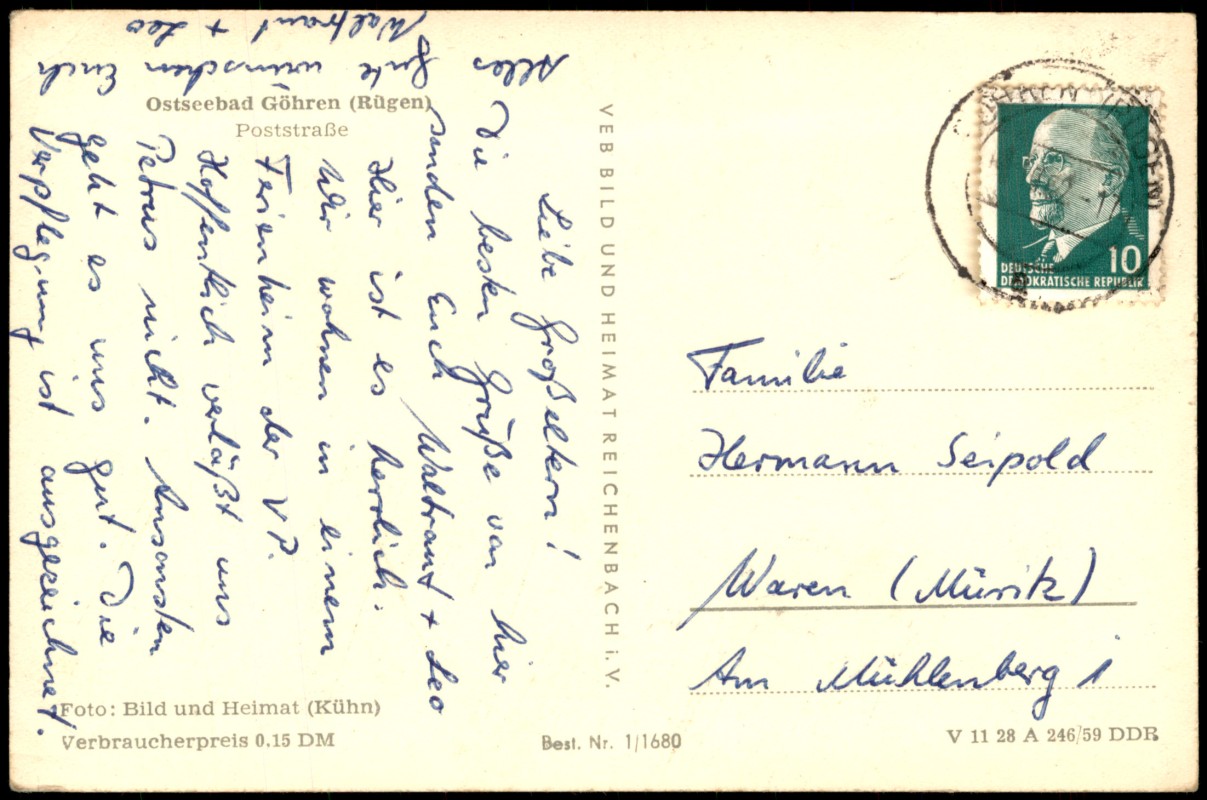 Ostseebad Göhren (Rügen)
Poststraße
Liebe Großeltern!
Die besten Grüße von hier
senden Euch Waltraut + Leo
Hier ist es herrlich.
Wir wohnen in einem
Ferienheim der VP.
Hoffentlich verläßt uns
Petrus nicht. Ansonsten
geht es uns gut. Die
Verpflegung ist ausgezeichnet.
Alles
Gute wünschen Euch
Waltraut + Leo
Foto: Bild und Heimat (Kühn)
Verbraucherpreis 0,15 DM
VEB BILD UND HEIMAT REICHENBACH i. V.
Best. Nr. 1/1680
10
DEUTSCHE
DEMOKRATISCHE REPUBLIK
Familie
Hermann Seipold
Waren (Müritz)
Am Mühlenberg 1
V 11 28 A 246/59 DDR